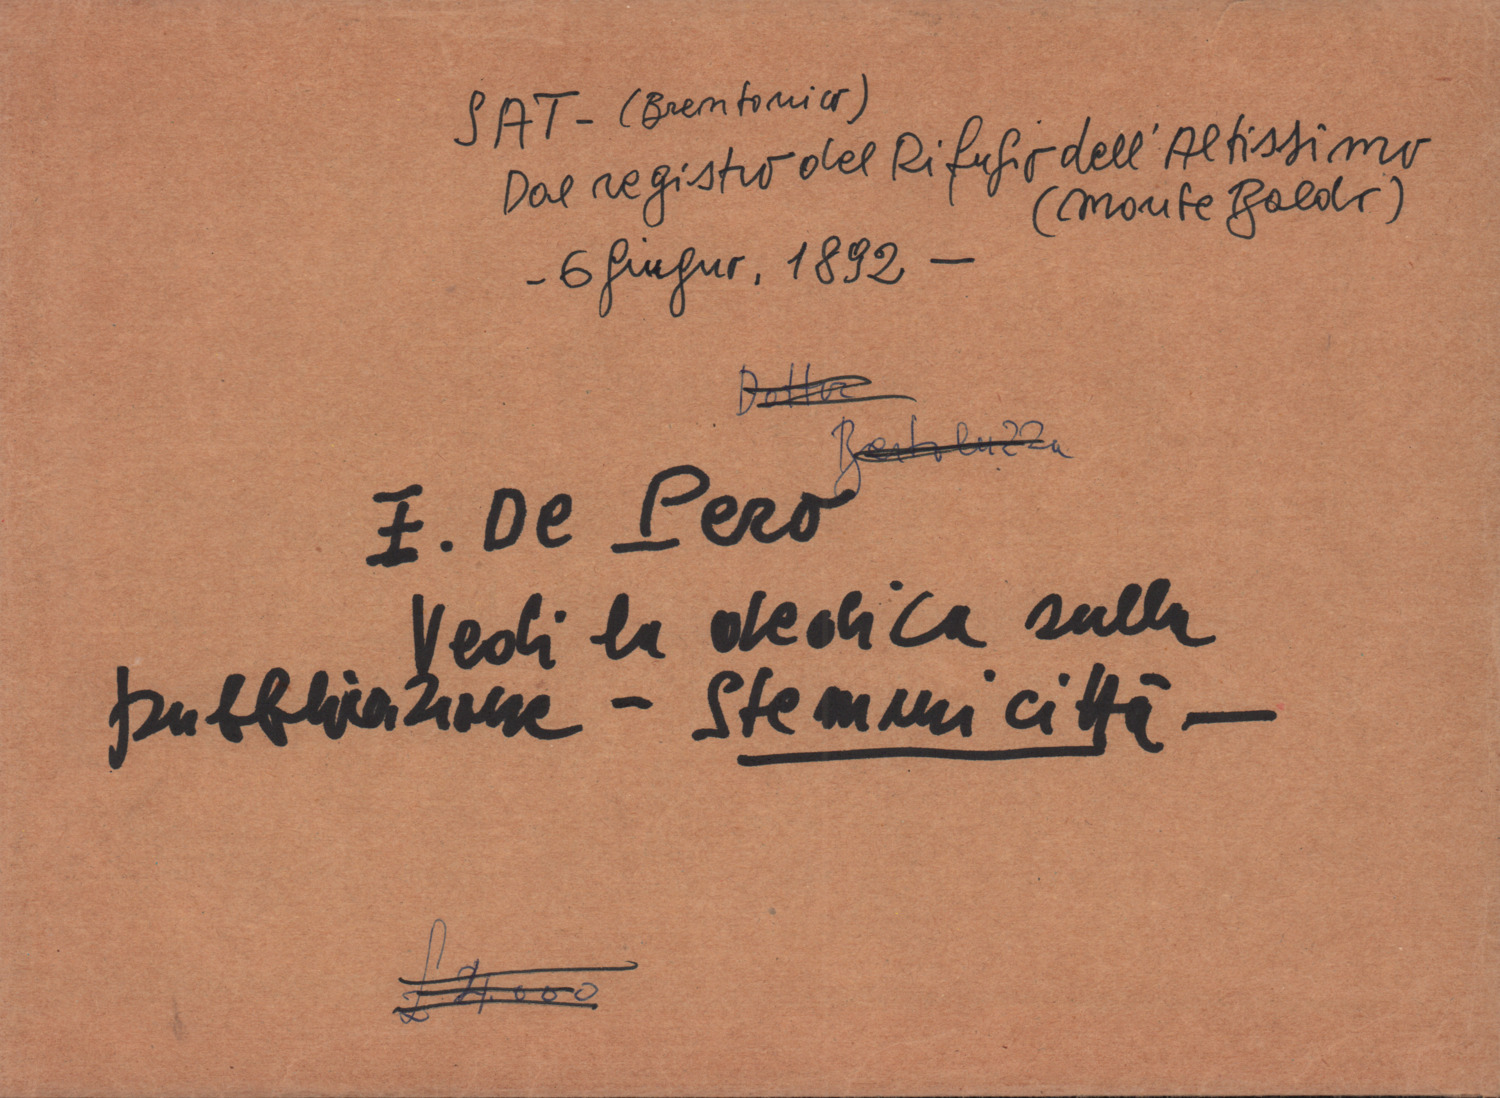 SAT - (Brentonico)
Dal registro del Rifugio dell'Altissimo
(Monte Baldo)
- 6 Giugno, 1892 -
Dottor
Bertoluzza
I. De Pero
Vedi la dedica sulla
pubblicazione - Stemmi città -
£ 4.000